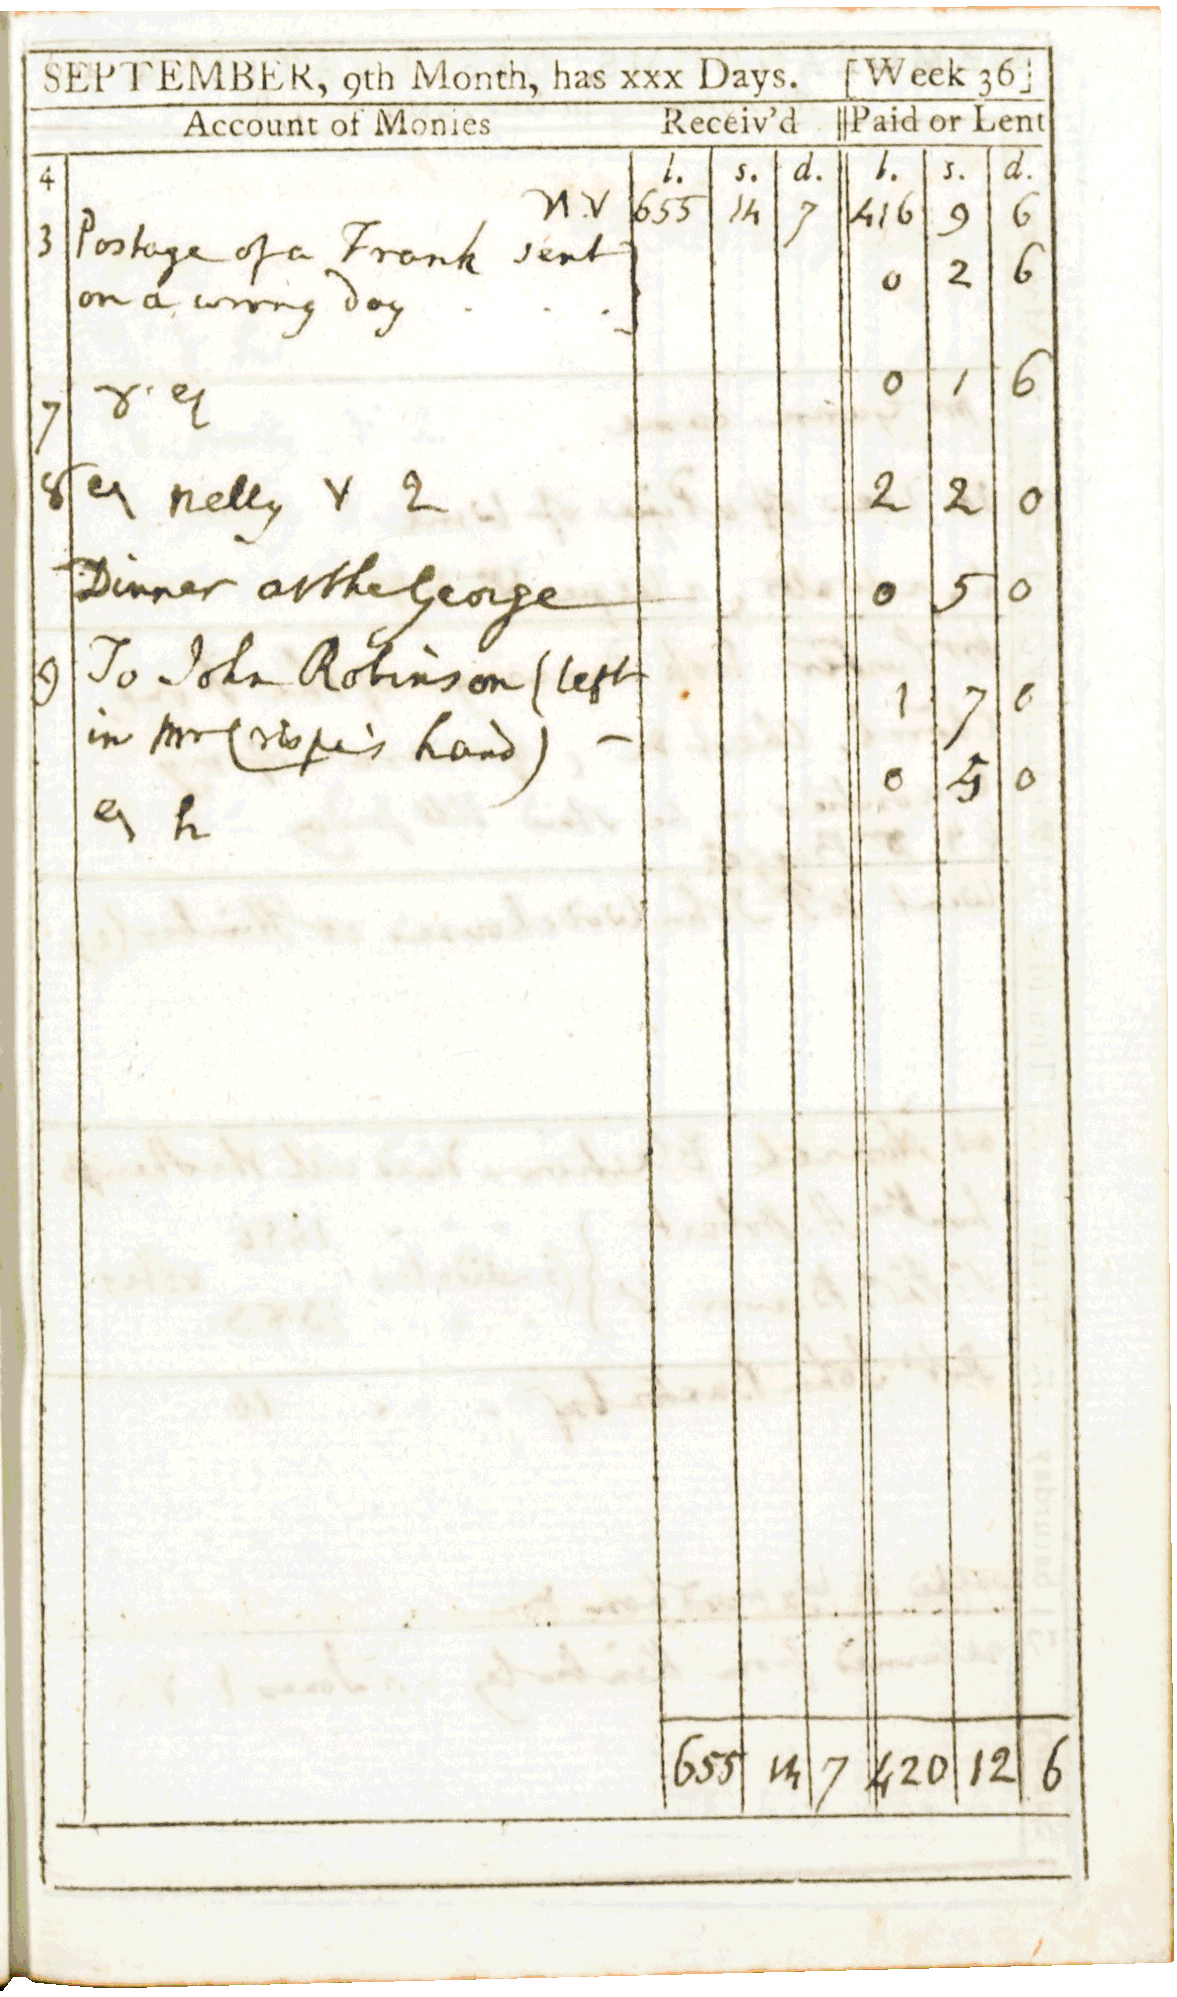 SEPTEMBER, 9th Month, has xxx Days. [Week 36]
Account of Monies Receiv'd Paid or Lent
l. s. d. l. s. d.
4
655 14 7 416 9 6
3 Postage of a Frank sent
on a wrong day . . . 0 2 6
7 0 1 6
8 nelly 2 2 2 0
Dinner at the George 0 5 0
9 To John Robinson (left
in Mr Crispe's hand) - 1 7 6
h 0 5 0
655 14 7 420 12 6